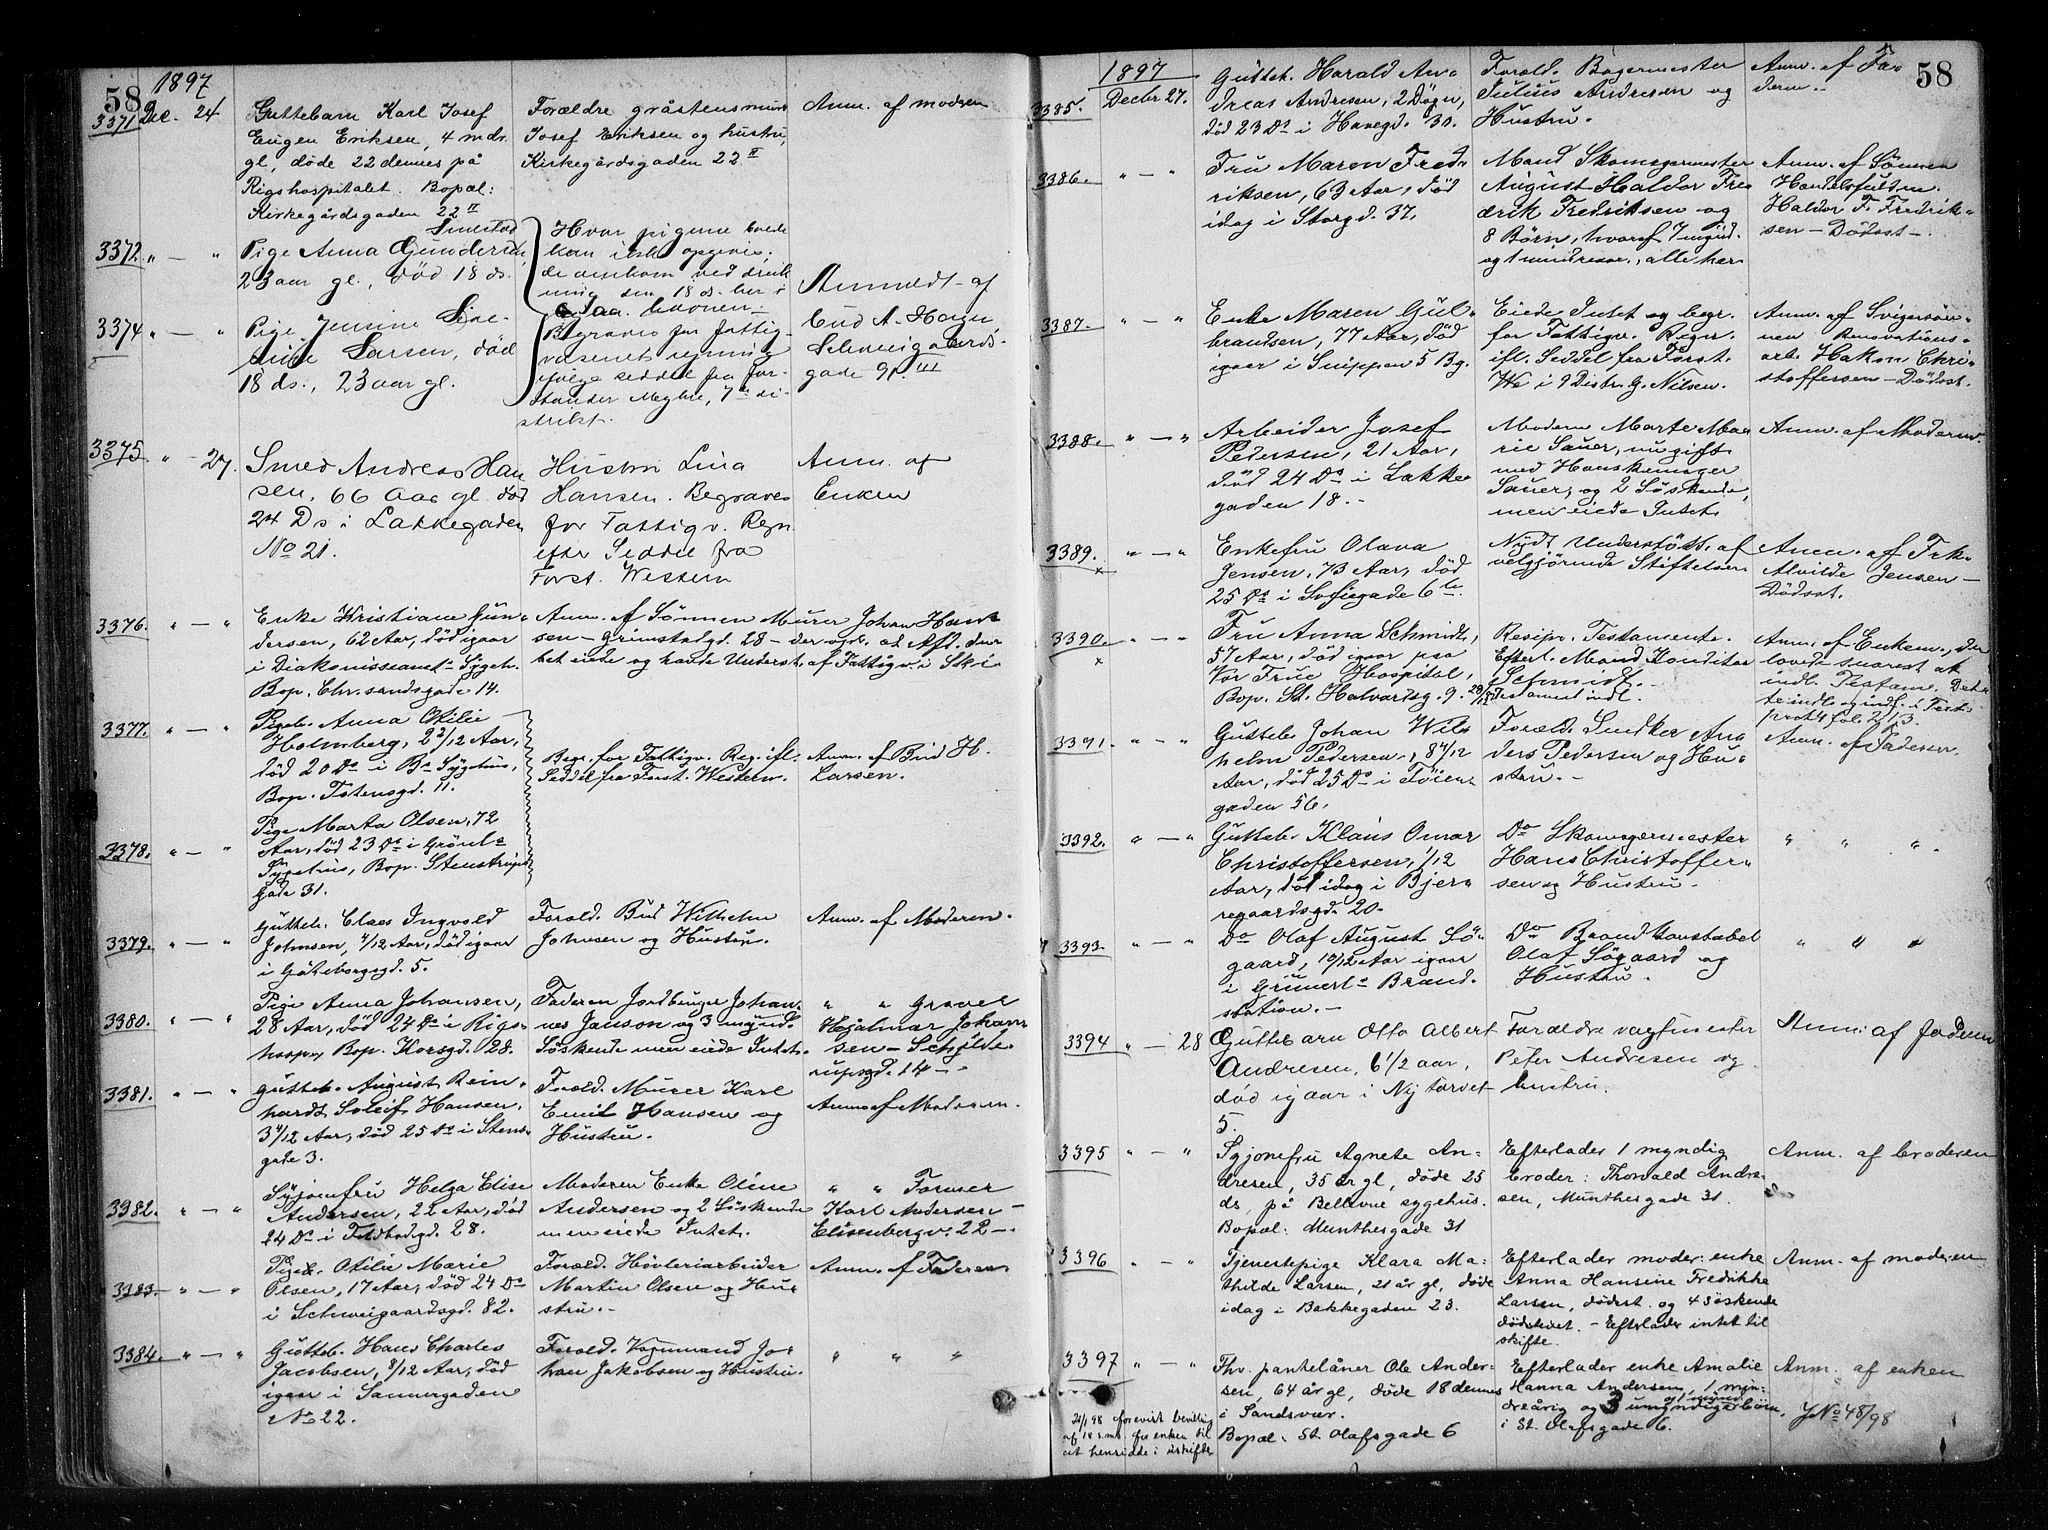 58
1897
3371 Dec. 24
Guttebarn Karl Josef
Eugen Eriksen, 4 mdr.
gl, døde 22 dennes på
Rigshospitalet. Bopæl:
Kirkegårdsgaden 22 II
Forældre gråstensmurer
Josef Eriksen og hustru,
Kirkegårdsgaden 22 II
Anm. af modren
3372 " — "
Pige Anna Gundersen,
23 aar gl., død 18 ds.
Hvor pigerne boede
kan ikke opgives;
de omkom ved drukning
den 18 ds. her i
Begraves for Fattigvæsenets
regning
ifølge seddel fra forstander
Myhre, 7de distrikt.
Anmeldt af
bud A. Hagen,
Schweigaards-
gade 91 III
3374 " — "
Pige Jensine
Larsen, død
18 ds., 23 aar gl.
3375. " — 27.
Smed Andreas Han
sen, 66 Aar gl. død
24 Ds i Lakkegaden
No 21.
Hustru Lina
Hansen. Begraves
for Fattigv. Regn.
efter Seddel fra
Forst. Western
Anm. af
Enken
3376. " — "
Enke Kristiane Gun-
dersen, 62 Aar, død igaar
i Diakonisseanst. Sygeh.
Bop. Chr.sandsgade 14.
Anm. af Sønnen Murer Johan Han-
sen — Grimstadgd. 28 — der opl. at Afd. Intet
eiede og havde Underst. af Fattigv. i Ski
3377. " — "
Pigeb. Anna Otilie
Holmberg, 2 2/12 Aar,
død 20 Ds i Bs Sygehus,
Bop. Totensgd. 11.
Begr. for Fattigv. Reg. ifl.
Seddel fra Forst. Western.
Anm. af Bud H.
Larsen.
3378. " — "
Pige Marta Olsen, 72
Aar, død 23 Ds i Grønl.s
Sygehus, Bop. Stenstrups
gade 31.
3379. " — "
Gutteb. Claes Ingvald
Johnsen, 4/12 Aar, død igaar
i Gøteborggd. 5.
Foræld. Bud Wilhelm
Johnsen og Hustru.
Anm. af Moderen.
3380. " — "
Pige Anna Johansen,
28 Aar, død 24 Ds i Rigs-
hosp., Bop. Korsgd. 28.
Faderen Jordbruger Johan-
nes Janson og 3 mynd.
Søskende men eiede Intet.
" " Gravel
Hjalmar Johan
sen — Schjølde-
rupsgd. 14 —
3381. " — "
Gutteb. August Rein-
hardt Soleif Hansen,
3 4/12 Aar, død 25 Ds i Stens-
gade 3.
Foræld. Murer Karl
Emil Hansen og
Hustru.
Anm. af Moderen.
3382. " — "
Syjomfru Helga Elise
Andersen, 22 Aar, død
24 Ds i Foldbodgd. 28.
Moderen Enke Oline
Andersen og 2 Søskende
men eiede Intet.
" " Formær
Karl Andersen —
Elisenbergv. 22 —.
3383. " — "
Pigeb. Otilie Marie
Olsen, 17 Aar, død 24 Ds
i Schweigaardsgd. 82.
Foræld. Høvleriarbeider
Martin Olsen og Hu-
stru.
Anm. af Faderen
3384. " — "
Gutteb. Hans Charles
Jacobsen, 8/12 Aar, død
igaar i Sannergaden
No 22.
Foræld. Vognmand Jo-
han Jakobsen og Hustru.
" " "
58
1897
3385. Decbr 27.
Gutteb. Harald An-
dreas Andresen, 2 Døgn,
død 23 Ds i Havegd. 30.
Foræld. Bagermester
Julius Andresen og
Hustru.
Anm. af Fa-
deren.
3386. " — "
Fru Maren Fred-
riksen, 63 Aar, død
idag i Storgd. 37.
Mand Skomagermester
August Haldor Fre
drik Fredriksen og
8 Børn, hvoraf 7 mynd.
og 1 mindreaar., alle her
Anm. af Sønnen
Handelsfuldm.
Haldor F. Fredrik-
sen — Dødsst —
3387. " — "
Enke Maren Gul-
brandsen, 77 Aar, død
igaar i Snippen 5 Bg.
Eiede Intet og begr.
for Fattigv. Regn.
ifl. Seddel fra Forst.
i 9 Distr. G. Nilsen.
Anm. af Svigersøn-
nen Renovations-
arb. Hakon Chri-
stoffersen — Dødsst.
3388. " — "
Arbeider Josef
Pedersen, 21 Aar,
død 24 Ds i Lakke-
gaden 18. —
Moderen Marte Ma-
rie Sauer, nu gift
med Hanskemager
Sauer, og 2 Søskende,
men eiede Intet.
Anm. af Moderen
3389. " — "
x
Enkefru Olava
Jensen, 73 Aar, død
25 Ds i Sofiegade 6 b.
Nydt Understøtt. af
velgjørende Stiftelser
Anm. af Frk.
Alvilde Jensen —
Dødsst.
3390. " — "
x
Fru Anna Schmidt,
57 Aar, død igaar paa
Vor Frue Hospital,
Bop. St. Halvardsg. 9.
Resipr. Testamente.
Efterl. Mand Konditor
Schmidt.
Testament indl.
Anm. af Enkem., der
lovede snarest at
indl. Testam.
3391. " — "
Gutteb. Johan Wil-
helm Pedersen, 8 4/12
Aar, død 25 Ds i Tøien-
gaden 56.
Foræld. Snedker An-
ders Pedersen og Hu-
stru. —
Anm. af Faderen.
3392. " — "
Gutteb. Klaus Omar
Christoffersen, 1/12
Aar, død idag i Bjer-
regaardsgd. 20.
Do Skomagermester
Hans Christoffer-
sen og Hustru.
" " "
3393. " — "
Do Olaf August Sø-
gaard, 10/12 Aar igaar
i Grünerl.s Brand-
station. —
Do Brandkonstabel
Olaf Søgaard og
Hustru.
" " "
3394 " — 28
Guttebarn Otto Albert
Andresen, 6 1/2 aar,
død igaar i Nytorvet
5.
Forældre vagtmester
Peter Andresen og
hustru.
Anm. af faderen
3395 " — "
Syjomfru Agnete An-
dresen, 35 år gl, døde 25
ds, på Bellevue sygehus.
Bopæl: Munthesgade 31
Efterlader 1 myndig
broder: Thorvald Andre-
sen, Munthesgade 31.
Anm. af broderen
3396 " — "
Tjenestepige Klara Ma-
thilde Larsen, 21 år gl, døde
idag i Bakkegaden 23.
Efterlader moder: enke
Anna Hansine Fredrikke
Larsen, dødsst. og 4 søskende
dødsboet. — Efterlader intet til
skifte.
Anm. af moderen
3397 " — "
Fhv. pantelåner Ole Ander-
sen, 64 år gl, døde 18 dennes
i Sandsvær.
Bopæl: St. Olafsgade 6
Efterlader enke Amalie
Hanna Andersen, 1 myn-
dreårig og 3 umyndige børn,
i St. Olafsgade 6.
Anm. af enken
J No 48/98
21/1 98 forevist bevilling
af 18 s.m. for enken til
at henridde i uskifte